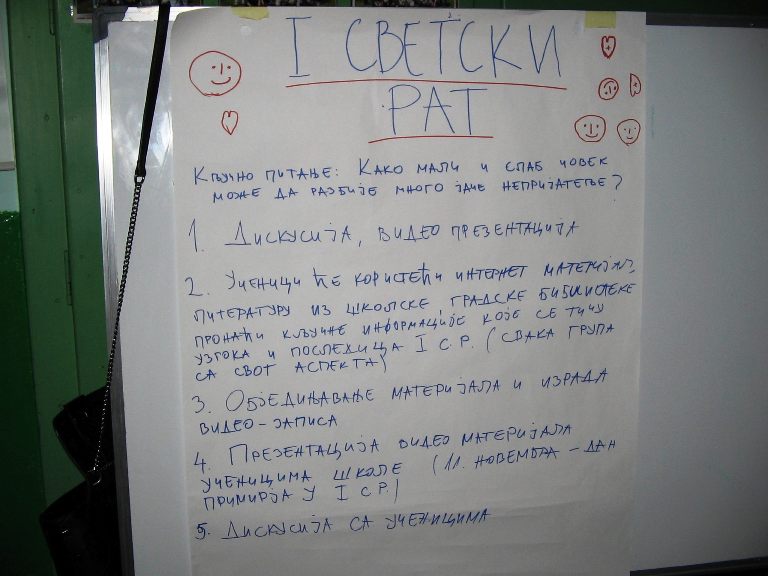 I СВЕТСКИ
РАТ
Кључно питање: Како мали и слаб човек
може да разбије много јаче непријатеље?
1. Дискусија, видео презентација
2. Ученици ће користећи интернет материјал,
литературу из школске градске библиотеке
пронаћи кључне информације које се тичу
узрока и последица I С.Р. (свака група
са свог аспекта)
3. Обједињавање материјала и израда
видео-записа
4. Презентација видео материјала
ученицима школе (11. новембра - дан
примирја у I С.Р.)
5. Дискусија са ученицима